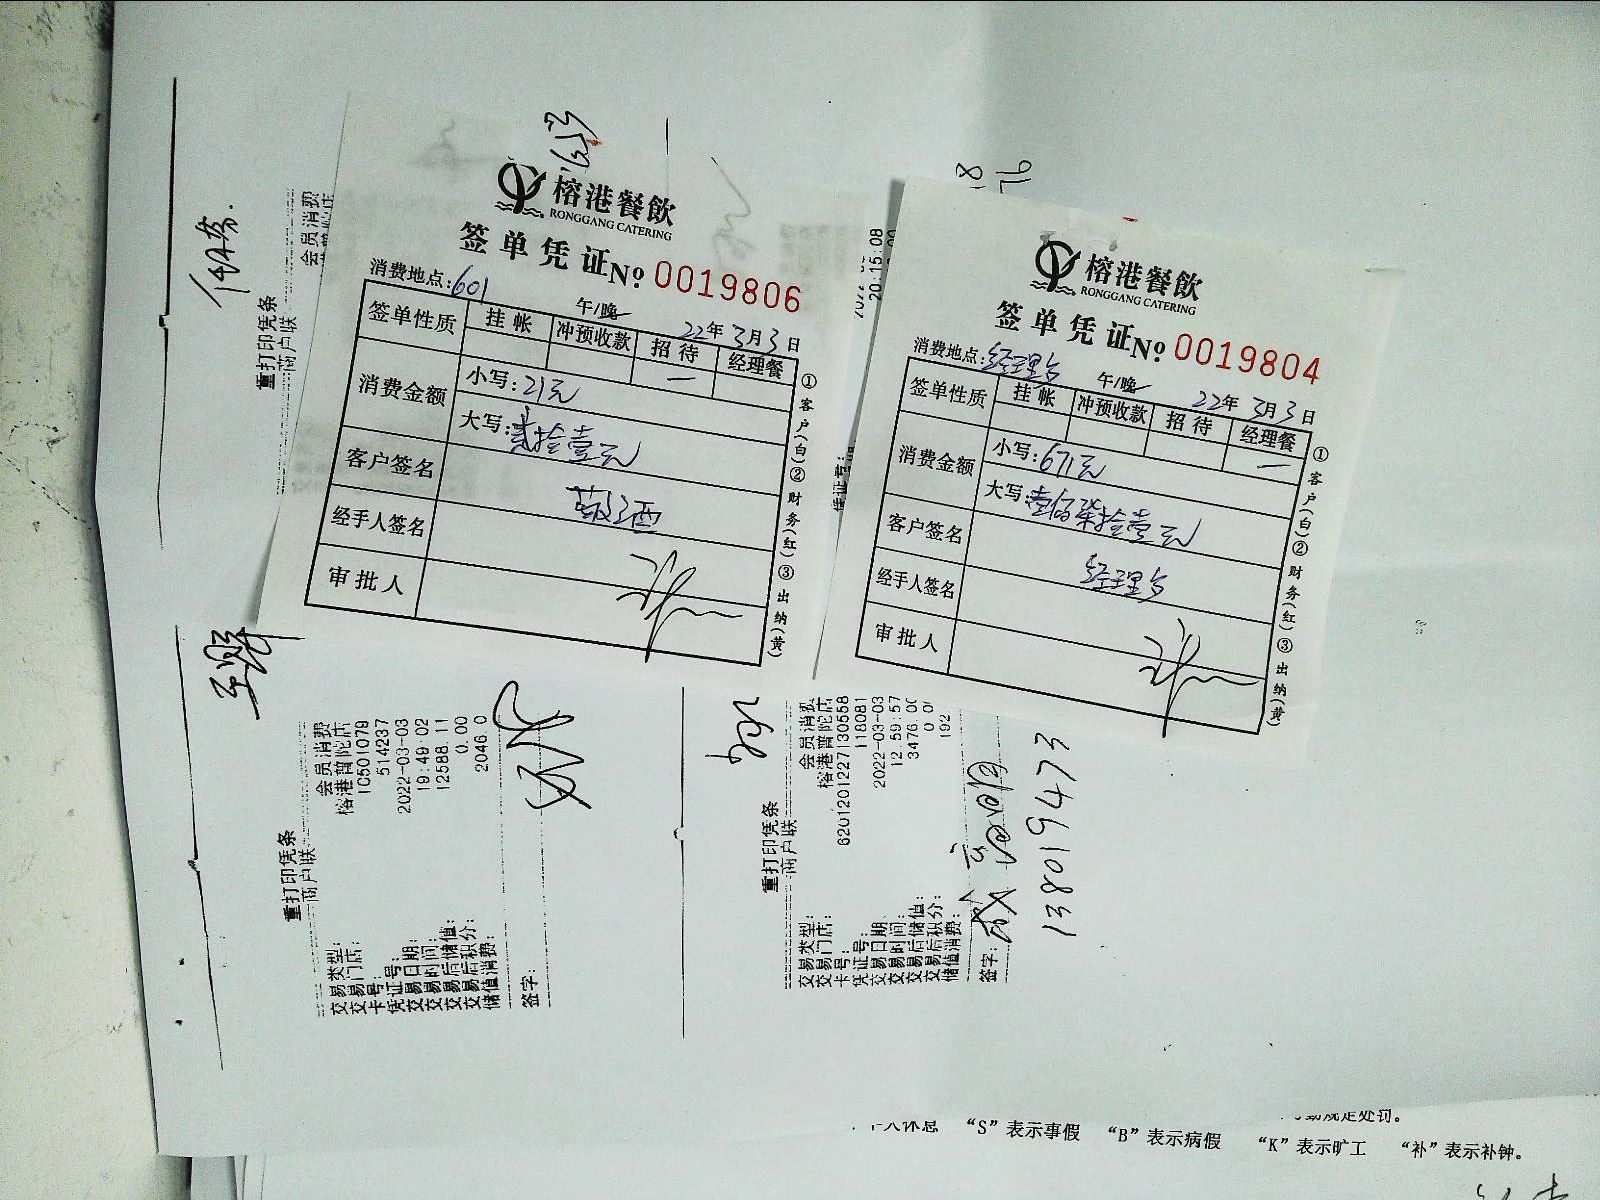 榕港餐飲
RONGGANG CATERING
签单凭证№ 0019806
消费地点:601
午/晚 22年3月3日
签单性质 挂帐 冲预收款 招待 经理餐
一
消费金额 小写:21元
大写:贰拾壹元
客户签名
经手人签名
审批人
①客户(白)②财务(红)③出纳(黄)
榕港餐飲
RONGGANG CATERING
签单凭证№ 0019804
消费地点:经理台
午/晚 22年3月3日
签单性质 挂帐 冲预收款 招待 经理餐
一
消费金额 小写:671元
大写:
客户签名
经理台
经手人签名
审批人
①客户(白)②财务(红)③出纳(黄)
重打印凭条
商户联
会员消费
20:15:08
重打印凭条
商户联
交易类型: 会员消费
交易门店: 榕港普陀店
卡号: IC501079
凭证号: 514237
交易日期: 2022-03-03
交易时间: 19:49:02
交易后储值: 12588.11
交易后积分: 0.00
储值消费: 2046.0
签字:
重打印凭条
商户联
交易类型: 会员消费
交易门店: 榕港普陀店
卡号: 6201201227130558
凭证号: 118081
交易日期: 2022-03-03
交易时间: 12:59:57
交易后储值: 3476.00
交易后积分:
储值消费: 192
签字:
13801947473
勤规定处罚。
休息 “S”表示事假 “B”表示病假 “K”表示旷工 “补”表示补钟。